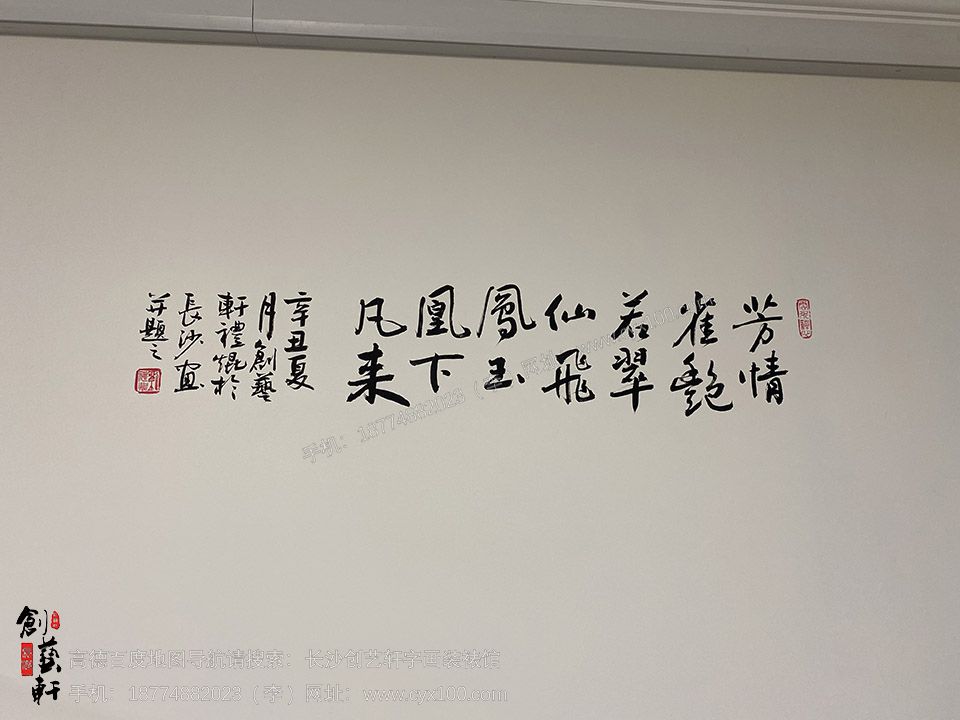 芳情
雀艷
若翠
仙飛
鳳玉
凰下
凡来
辛丑夏
月創藝
軒禮焜於
長沙畫
并題之
創藝軒
高德百度地图导航请搜索：长沙创艺轩字画装裱馆
手机：（李）网址：www.cyx100.com